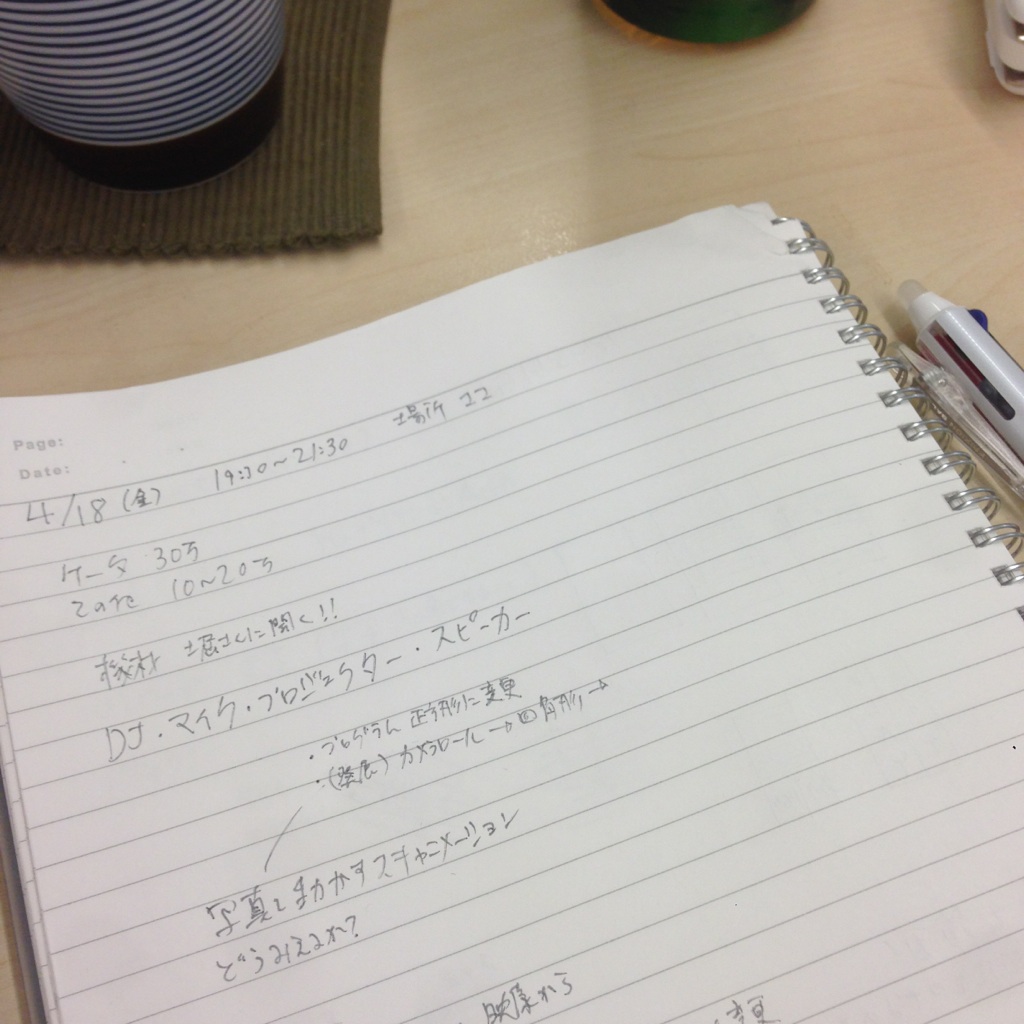 Page:
Date:
4/18 (金) 19:30～21:30 場所 ココ
ケータ 30万
その他 10～20万
機材 堀さんに聞く!!
DJ・マイク・プロジェクター・スピーカー
・プログラム 正方形に変更
・(発展) カメラロール→四角形→
写真を動かすスキャニメーション
どうみえるか?
映像から
変更